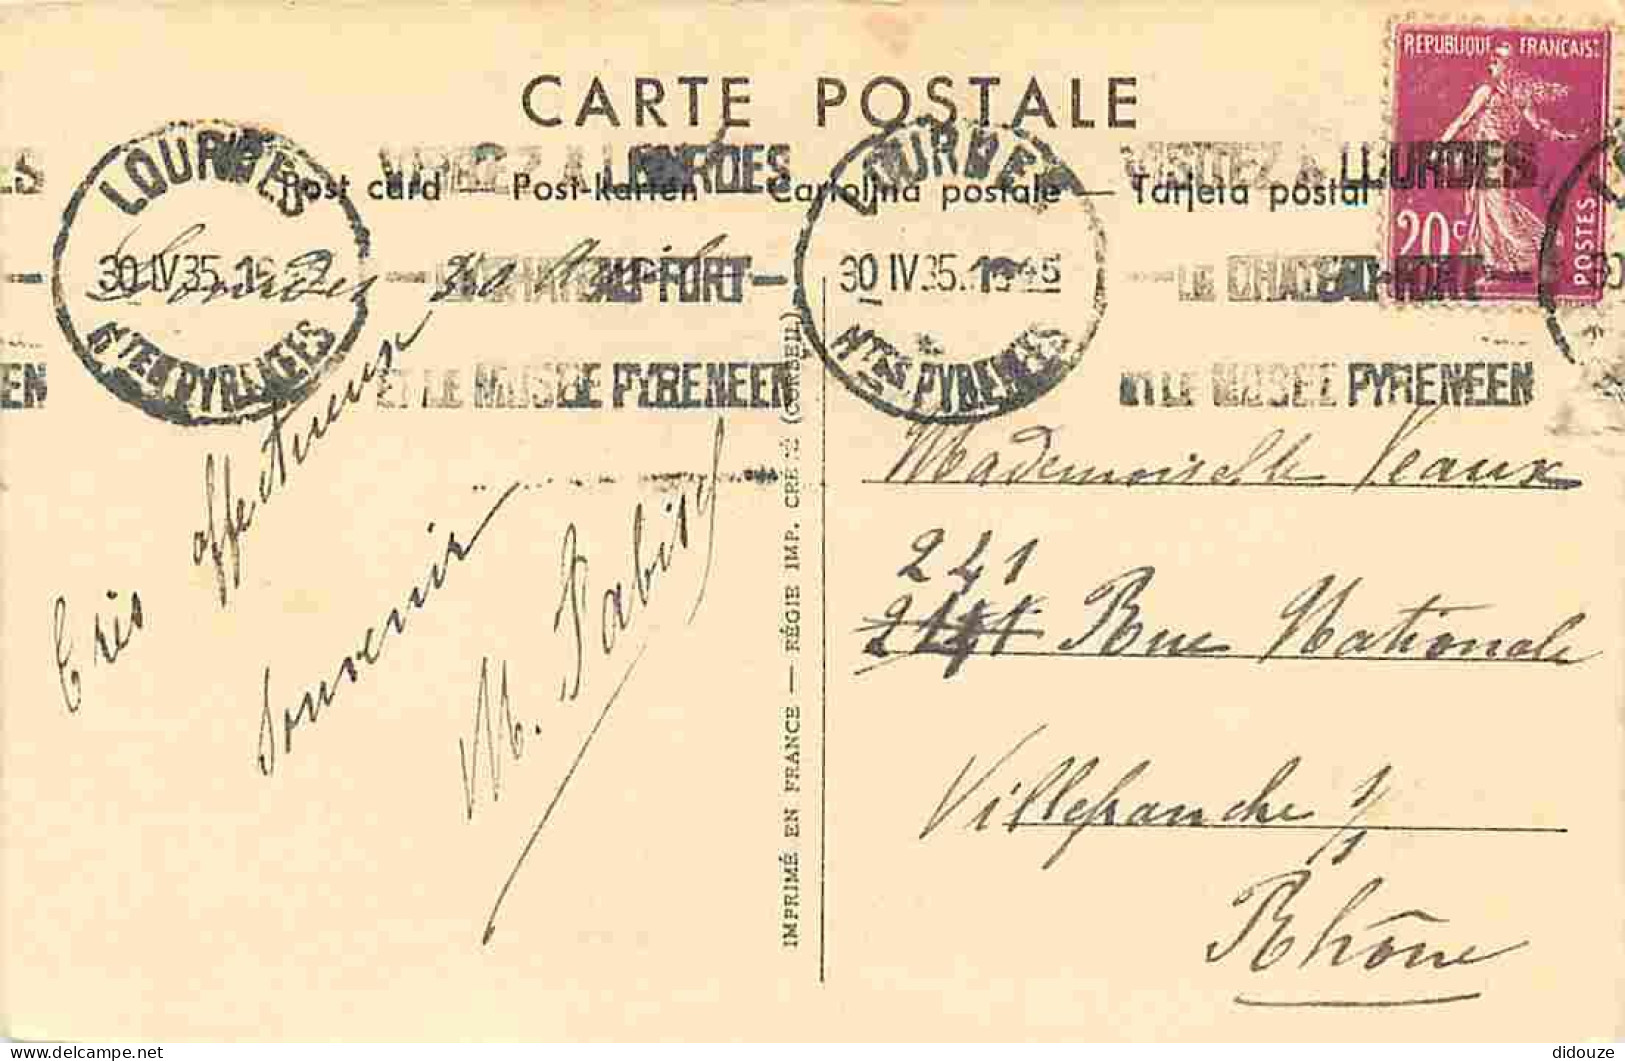 CARTE POSTALE
Post card — Post-karten — Cartolina postale — Tarjeta postal
REPUBLIQUE FRANÇAISE
20c
POSTES
LOURDES
30 IV 35
Htes PYRENEES
VISITEZ LOURDES
LE CHATEAU-FORT
ET LE MUSEE PYRENEEN
LOURDES
30 IV 35
Htes PYRENEES
VISITEZ LOURDES
LE CHATEAU-FORT
ET LE MUSEE PYRENEEN
Lourdes 30 Avril
Très affectueux
souvenir
M.
IMPRIMÉ EN FRANCE — RÉGIE IMP. CRÉTÉ (CORBEIL)
Mademoiselle Veaux
241
Rue Nationale
Villefranche s/s
Rhône
didouze
delcampe.net